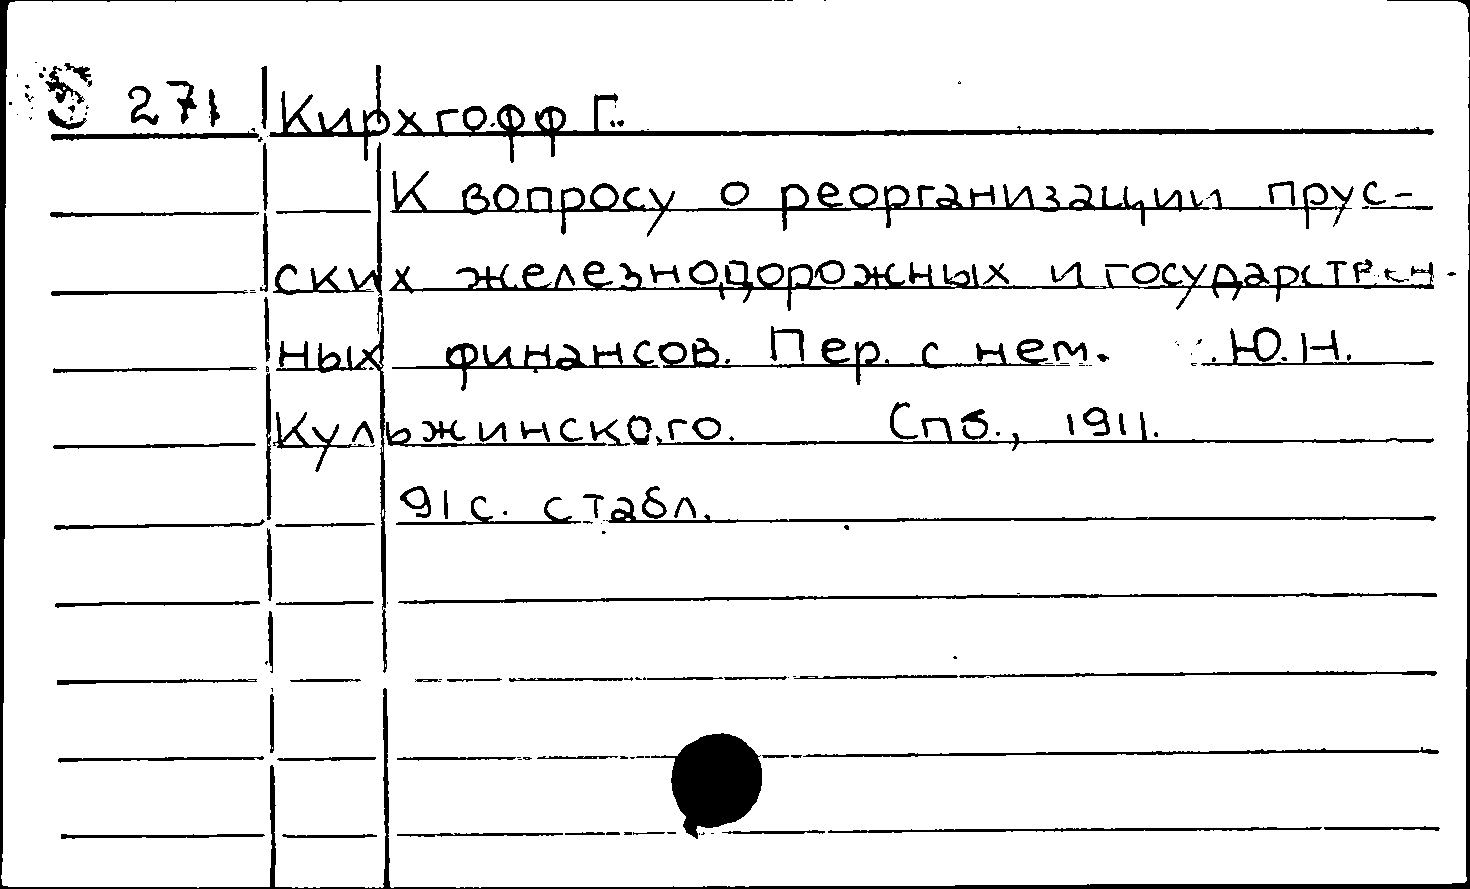 S 271 Кирхгофф Г.
К вопросу о реорганизации прус-
ских железнодорожных и государствен-
ных финансов. Пер. с нем. Ю.Н.
Кульжинского. Спб., 1911.
91 с. с табл.